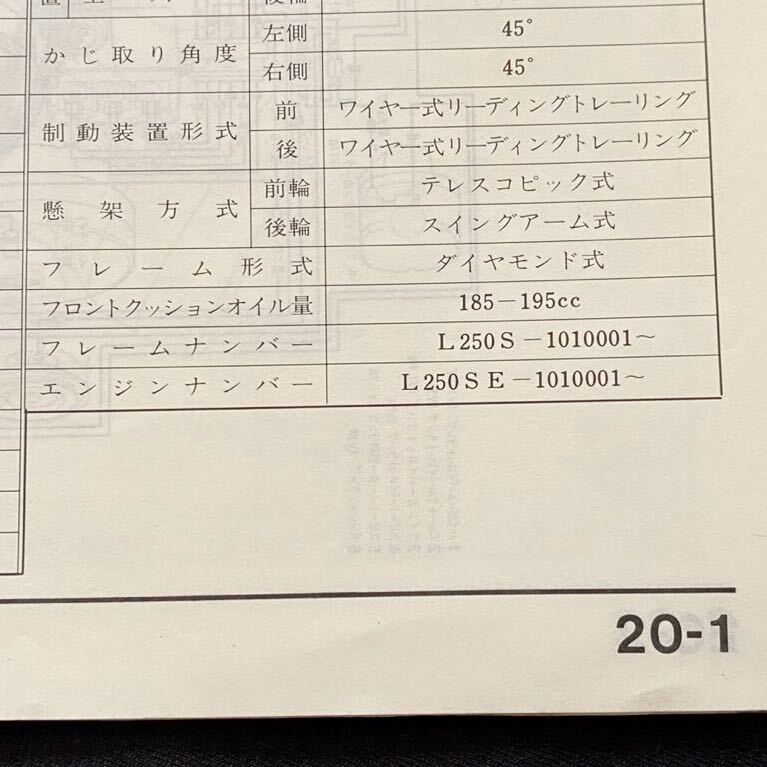 かじ取り角度 左側 45°
右側 45°
制動装置形式 前 ワイヤー式リーディングトレーリング
後 ワイヤー式リーディングトレーリング
懸架方式 前輪 テレスコピック式
後輪 スイングアーム式
フレーム形式 ダイヤモンド式
フロントクッションオイル量 185－195cc
フレームナンバー L250S－1010001～
エンジンナンバー L250SE－1010001～
20-1